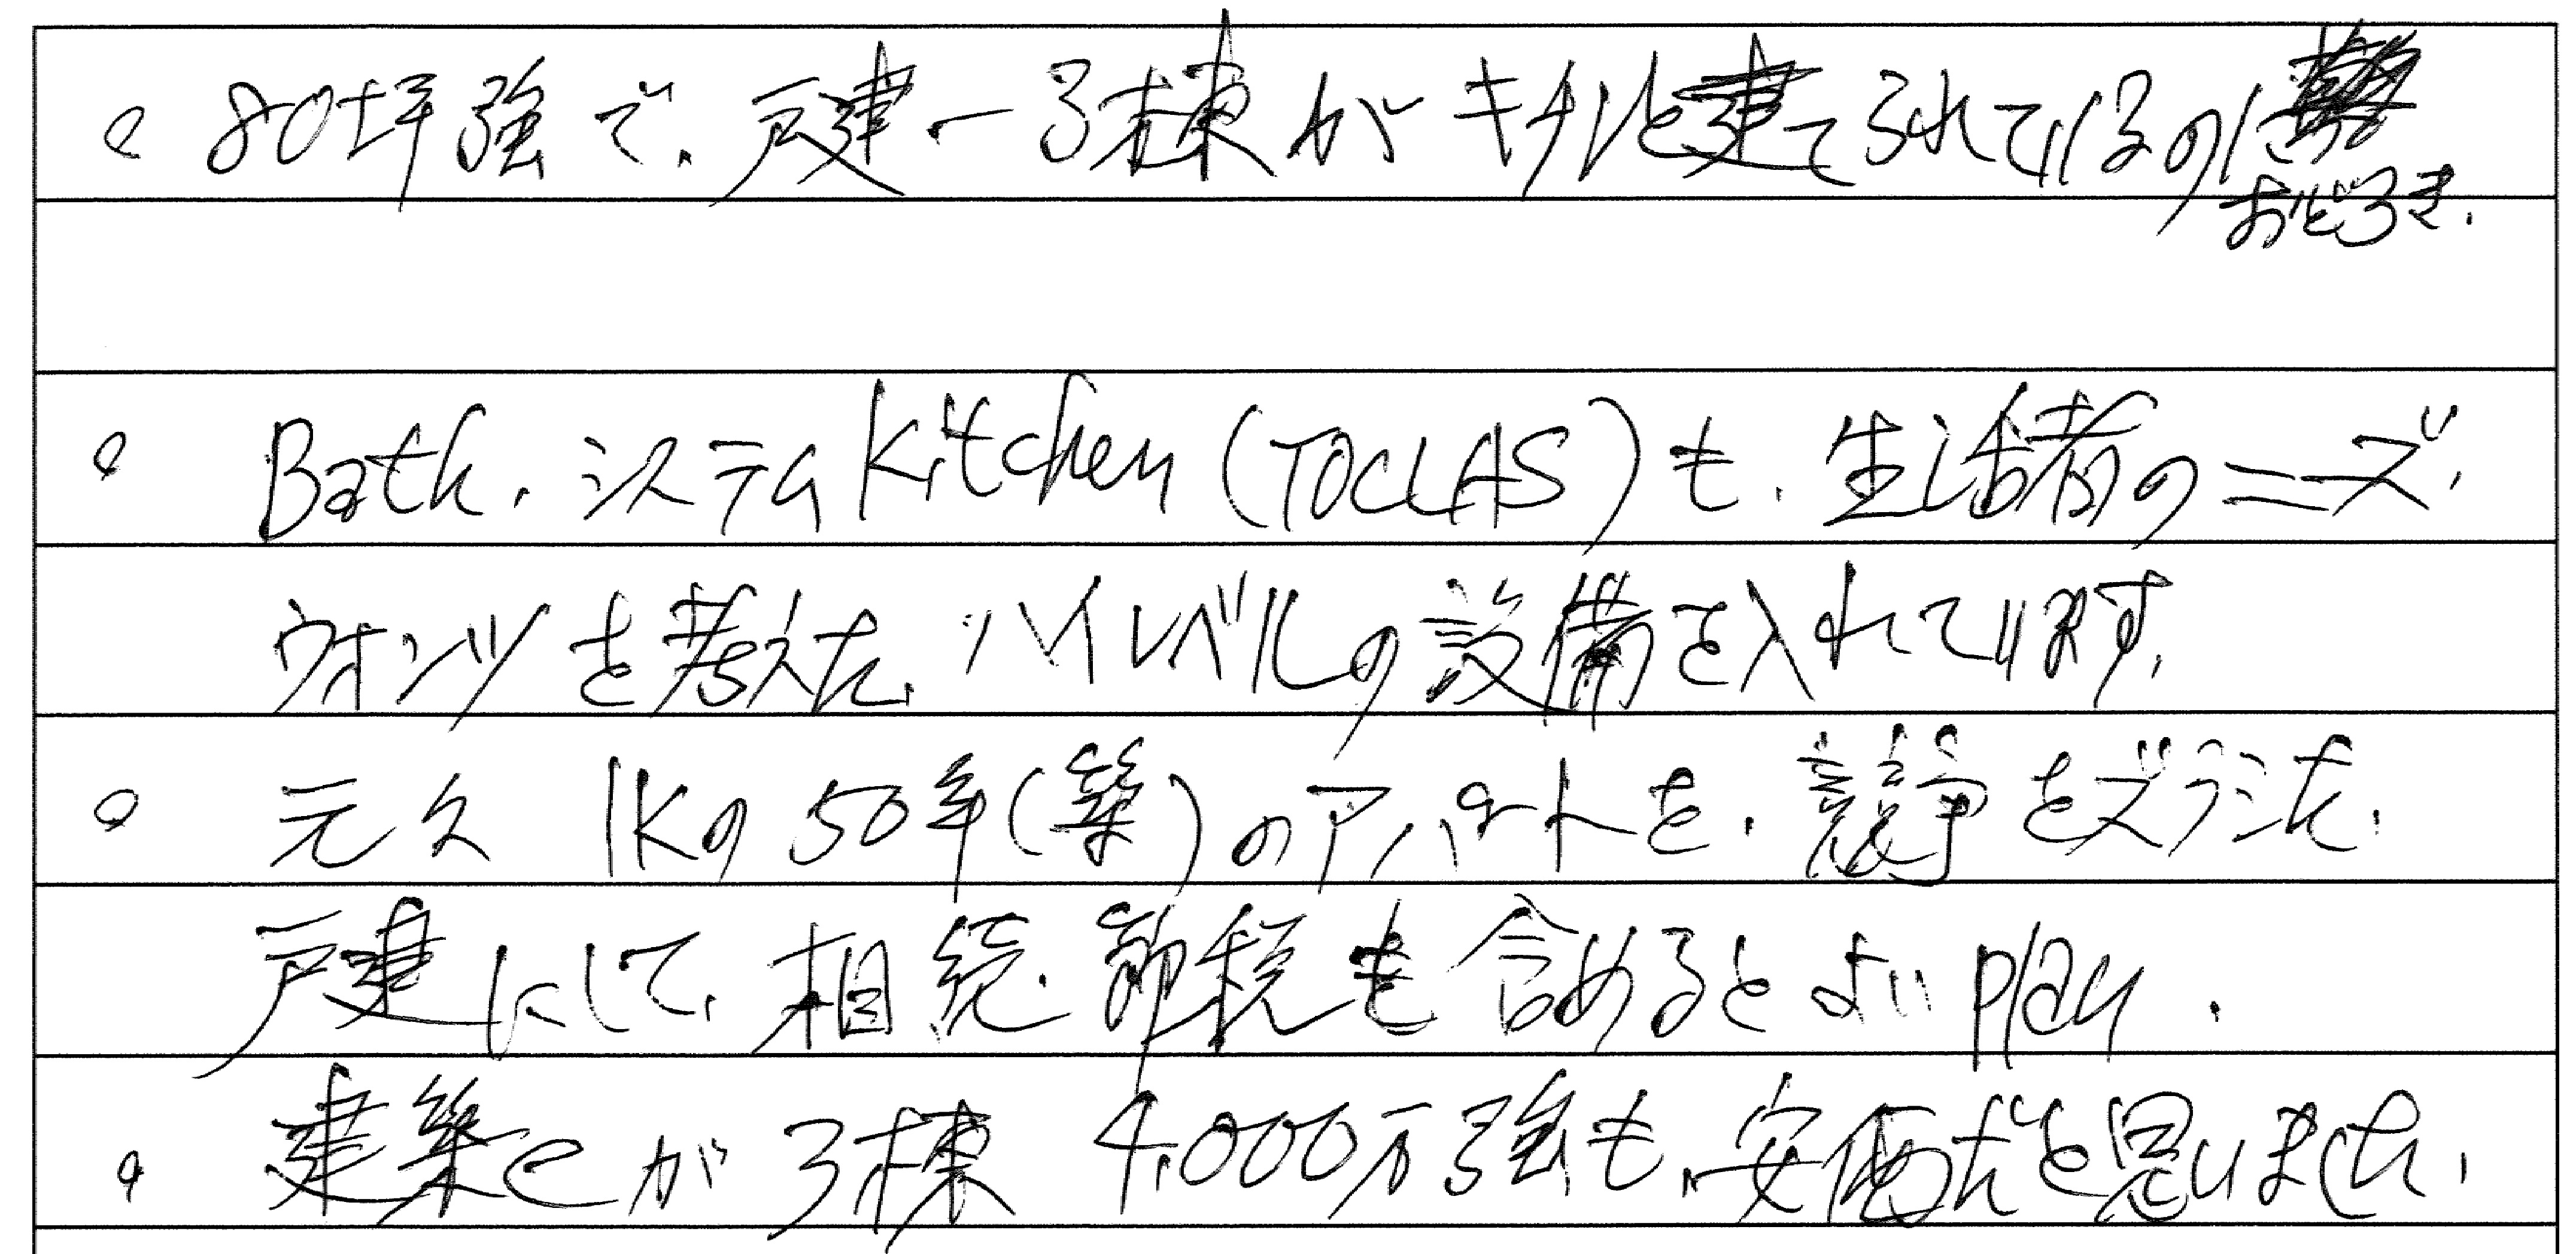 。80坪強で、戸建ー3棟がキチンと建てられているのに
おどろき.
。Bath.システムKitchen(TOCLAS)も.生活者のニーズ.
ウォンツを考えた.ハイレベルの設備を入れています.
。元々 1Kの50年(築)のアパートを.競争をズラした.
戸建にして.相続.節税も含めるとよいplan.
。建築Cが3棟 4,000万強も.安価だと思いました.